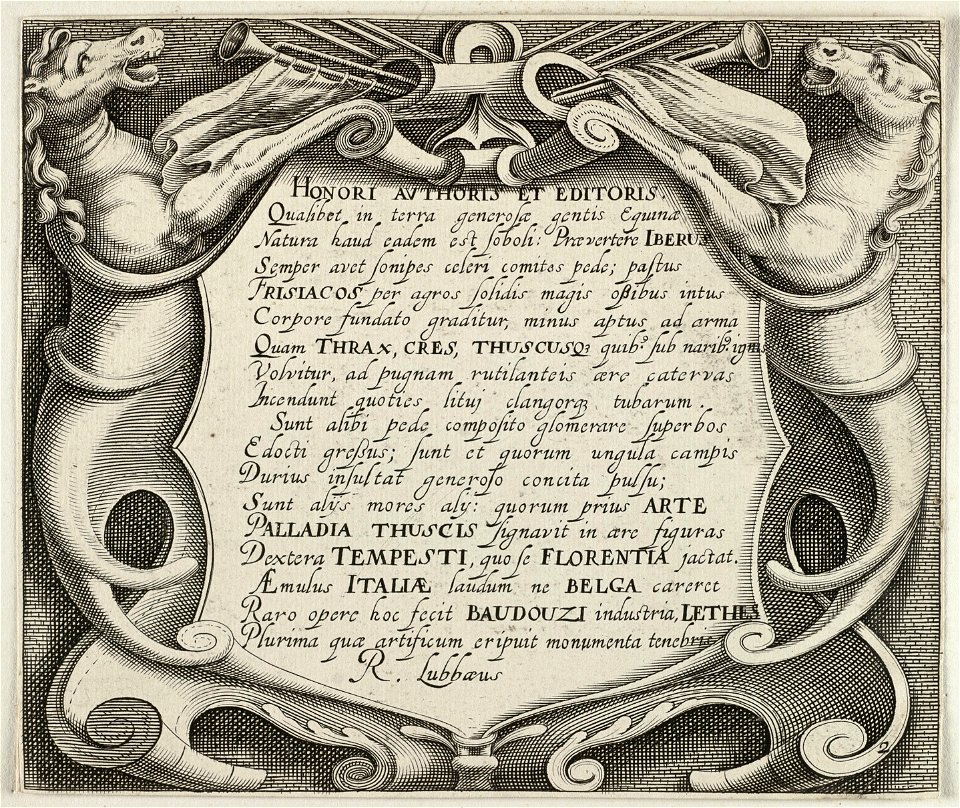 HONORI AVTHORIS ET EDITORIS.
Qualibet in terra generosæ gentis Equinæ
Natura haud eadem est soboli: Prævertere IBERUS
Semper avet sonipes celeri comites pede; pastus
FRISIACOS per agros solidis magis oßibus intus
Corpore fundato graditur, minus aptus ad arma
Quam THRAX, CRES, THUSCUSQꝫ quibꝰ sub naribꝰ ignis
Volvitur, ad pugnam rutilanteis ære catervas
Incendunt quoties litui clangorqꝫ tubarum.
Sunt alibi pede composito glomerare superbos
Edocti greßus; sunt et quorum ungula campis
Durius insultat generoso concita pulsu;
Sunt alys mores aly: quorum prius ARTE
PALLADIA THUSCIS signavit in ære figuras
Dextera TEMPESTI, quo se FLORENTIA jactat.
Æmulus ITALIÆ laudum ne BELGA careret
Raro opere hoc fecit BAUDOUZI industria, LETHES
Plurima quæ artificum eripuit monumenta tenebris
R. Lubbæus
2